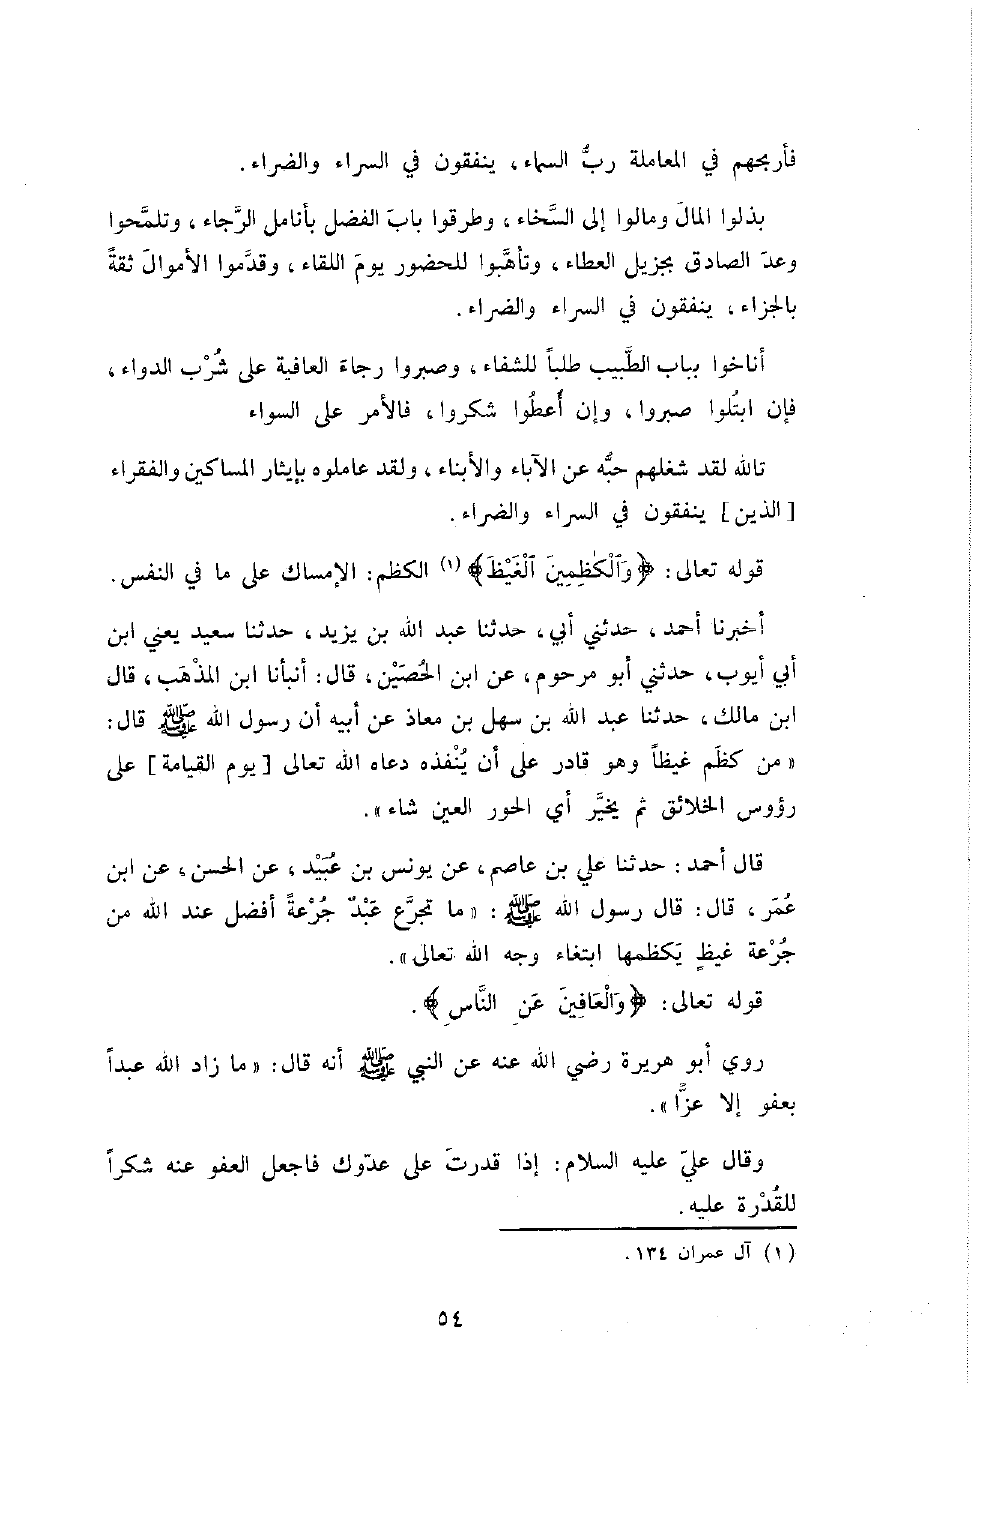 فأربحهم في المعاملة ربُّ السماء، ينفقون في السراء والضراء.
بذلوا المالَ ومالوا إلى السَّخاء، وطرقوا بابَ الفضل بأنامل الرَّجاء، وتلمَّحوا
وعدَ الصادق بجزيل العطاء، وتأهَّبوا للحضور يومَ اللقاء، وقدَّموا الأموالَ ثقةً
بالجزاء، ينفقون في السراء والضراء.
أناخوا بباب الطَّبيب طلباً للشفاء، وصبروا رجاءَ العافية على شُرْب الدواء،
فإن ابتُلوا صبروا، وإن أُعطُوا شكروا، فالأمر على السواء
تالله لقد شغلهم حبُّه عن الآباء والأبناء، ولقد عاملوه بإيثار المساكين والفقراء
[الذين] ينفقون في السراء والضراء.
قوله تعالى: ﴿وَٱلْكَٰظِمِينَ ٱلْغَيْظَ﴾ (١) الكظم: الإمساك على ما في النفس.
أخبرنا أحمد، حدثني أبي، حدثنا عبد الله بن يزيد، حدثنا سعيد يعني ابن
أبي أيوب، حدثني أبو مرحوم، عن ابن الحُصَيْن، قال: أنبأنا ابن المذْهَب، قال
ابن مالك، حدثنا عبد الله بن سهل بن معاذ عن أبيه أن رسول الله ﷺ قال:
«من كظَم غيظاً وهو قادر على أن يُنْفذه دعاه الله تعالى [يوم القيامة] على
رؤوس الخلائق ثم يخيَّر أي الحور العين شاء».
قال أحمد: حدثنا علي بن عاصم، عن يونس بن عُبَيْد، عن الحسن، عن ابن
عُمَر، قال: قال رسول الله ﷺ: «ما تجرَّع عَبْدٌ جُرْعةً أفضل عند الله من
جُرْعة غيظٍ يَكظمها ابتغاء وجه الله تعالى».
قوله تعالى: ﴿وَالْعَافِينَ عَنِ النَّاسِ﴾.
روي أبو هريرة رضي الله عنه عن النبي ﷺ أنه قال: «ما زاد الله عبداً
بعفو إلا عزًّا».
وقال عليّ عليه السلام: إذا قدرتَ على عدّوك فاجعل العفو عنه شكراً
للقُدْرة عليه.
(١) آل عمران ١٣٤.
٥٤